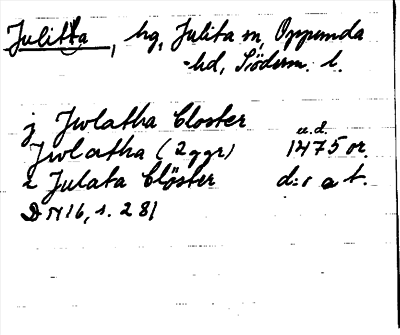 Julitta, hg, Julita sn, Oppunda
-hd, Söderm. l.
j Jwlatha Closter
u.d.
Jwlatha (2 ggr) 1475 or.
z Julata Clöster d:o a t.
DN 16, s. 281